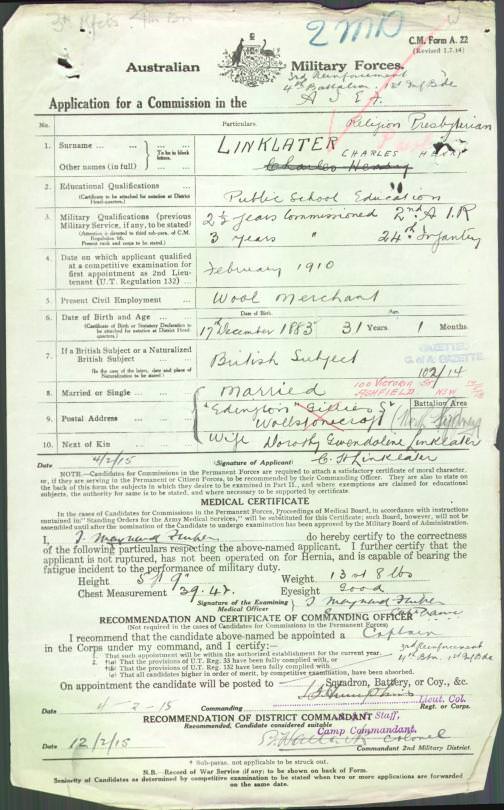 3rd Rfcts 4th Bn
2 MD
C.M. Form A. 22
(Revised 1.7.14)
Australian Military Forces.
3rd Reinforcement
4th Battalion 1st Inf Bde
Application for a Commission in the A I F.
No. Particulars. Religion Presbyterian
1. Surname ... LINKLATER
To be in block letters.
Other names (in full) Charles Henry CHARLES HENRY
2. Educational Qualifications ... Public School Education
(Certificate to be attached for notation at District Head-quarters.)
3. Military Qualifications (previous Military Service, if any, to be stated) 2½ years Commissioned 2nd A I R
(Attention is directed to third sub-para. of C.M. Regulation 66. Present rank and corps to be stated.) 3 years " 24th Infantry
4. Date on which applicant qualified at a competitive examination for first appointment as 2nd Lieutenant (U.T. Regulation 132) ... February 1910
5. Present Civil Employment ... Wool Merchant
6. Date of Birth and Age ... Date of Birth. Age.
(Certificate of Birth or Statutory Declaration to be attached for notation at District Head-quarters.) 17th December 1883 31 Years 1 Months
7. If a British Subject or a Naturalized British Subject ... British Subject
(In the case of the latter, date and place of Naturalization to be stated.)
GAZETTE
C. of A. GAZETTE
102/14
8. Married or Single ... Married
100 VICTORIA ST
ASHFIELD NSW
9. Postal Address ... "Edington" Gillies St
Wollstonecraft
Battalion Area
North Sydney
10. Next of Kin ... Wife Dorothy Gwendoline Linklater
Date 4/2/15 (Signature of Applicant) C. H Linklater
NOTE.—Candidates for Commissions in the Permanent Forces are required to attach a satisfactory certificate of moral character, or, if they are serving in the Permanent or Citizen Forces, to be recommended by their Commanding Officer. They are also to state on the back of this form the subjects in which they desire to be examined in Part II., and where exemptions are claimed for educational subjects, the authority for same is to be stated, and where necessary to be supported by certificate.
MEDICAL CERTIFICATE
In the cases of Candidates for Commissions in the Permanent Forces, Proceedings of Medical Board, in accordance with instructions contained in "Standing Orders for the Army Medical Services," will be substituted for this Certificate; such Board, however, will not be assembled until after the nomination of the Candidate to undergo examination has been approved by the Military Board of Administration.
I, J Maynard do hereby certify to the correctness
of the following particulars respecting the above-named applicant. I further certify that the
applicant is not ruptured, has not been operated on for Hernia, and is capable of bearing
fatigue incident to the performance of military duty.
Height 5' 9" Weight 13 st 8 lbs
Chest Measurement Eyesight Good
Signature of the Examining Medical Officer J Maynard
RECOMMENDATION AND CERTIFICATE OF COMMANDING OFFICER
(Not required in the cases of Candidates for Commissions in the Permanent Forces.)
I recommend that the candidate above-named be appointed a Captain
in the Corps under my command, and I certify:— 3rd Reinforcement
4th Btn. 1st Inf Bde
1. That such appointment will be within the authorized establishment for the current year.
2. *(a) That the provisions of U.T. Reg. 55 have been fully complied with, or
*(b) That the provisions of U.T. Reg. 132 have been fully complied with.
*(c) That all candidates higher in order of merit, by competitive examination, have been absorbed.
On appointment the candidate will be posted to Squadron, Battery, or Coy., &c.
Date 4-2-15 Commanding Lieut. Col. Regt. or Corps.
RECOMMENDATION OF DISTRICT COMMANDANT
Recommended, Candidate considered suitable
Staff,
Camp Commandant.
Date 12/2/15 Colonel
Commandant 2nd Military District.
* Sub-paras. not applicable to be struck out.
N.B.—Record of War Service (if any) to be shown on back of Form.
Seniority of Candidates as determined by competitive examination to be stated when two or more applications are forwarded on the same date.